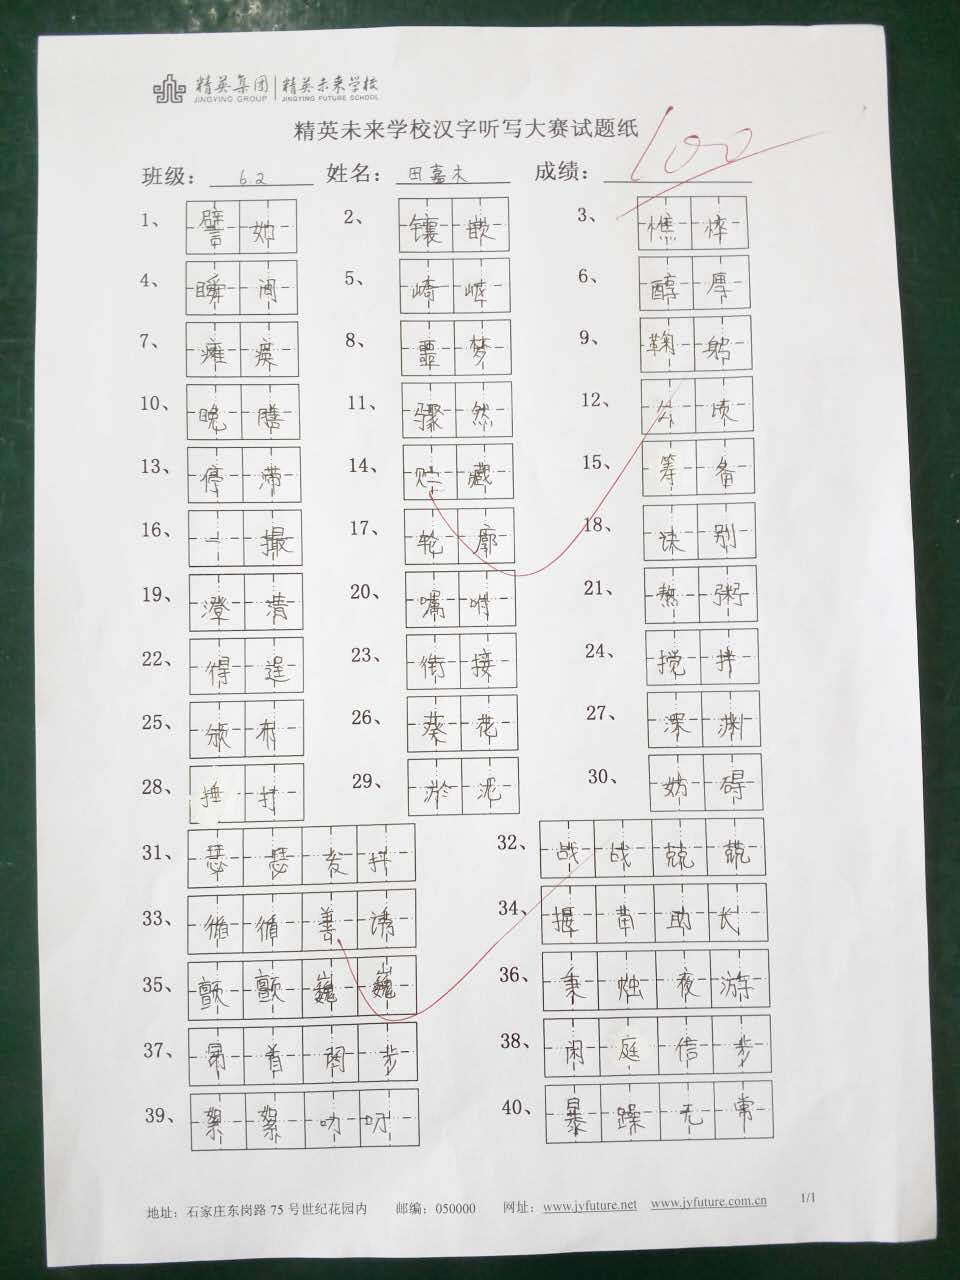 精英集团 精英未来学校
JINGYING GROUP JINGYING FUTURE SCHOOL
精英未来学校汉字听写大赛试题纸
班级：6.2 姓名：田嘉木 成绩：100
1、譬如 2、镶嵌 3、憔悴
4、瞬间 5、崎岖 6、醇厚
7、瘫痪 8、噩梦 9、鞠躬
10、晚膳 11、骤然 12、公顷
13、停滞 14、贮藏 15、筹备
16、一撮 17、轮廓 18、诀别
19、澄清 20、嘱咐 21、熬粥
22、得逞 23、衔接 24、搅拌
25、颁布 26、葵花 27、深渊
28、捶打 29、淤泥 30、妨碍
31、瑟瑟发抖 32、战战兢兢
33、循循善诱 34、揠苗助长
35、颤颤巍巍 36、秉烛夜游
37、昂首阔步 38、闲庭信步
39、絮絮叨叨 40、暴躁无常
地址：石家庄东岗路 75 号世纪花园内 邮编：050000 网址：www.jyfuture.net www.jyfuture.com.cn 1/1